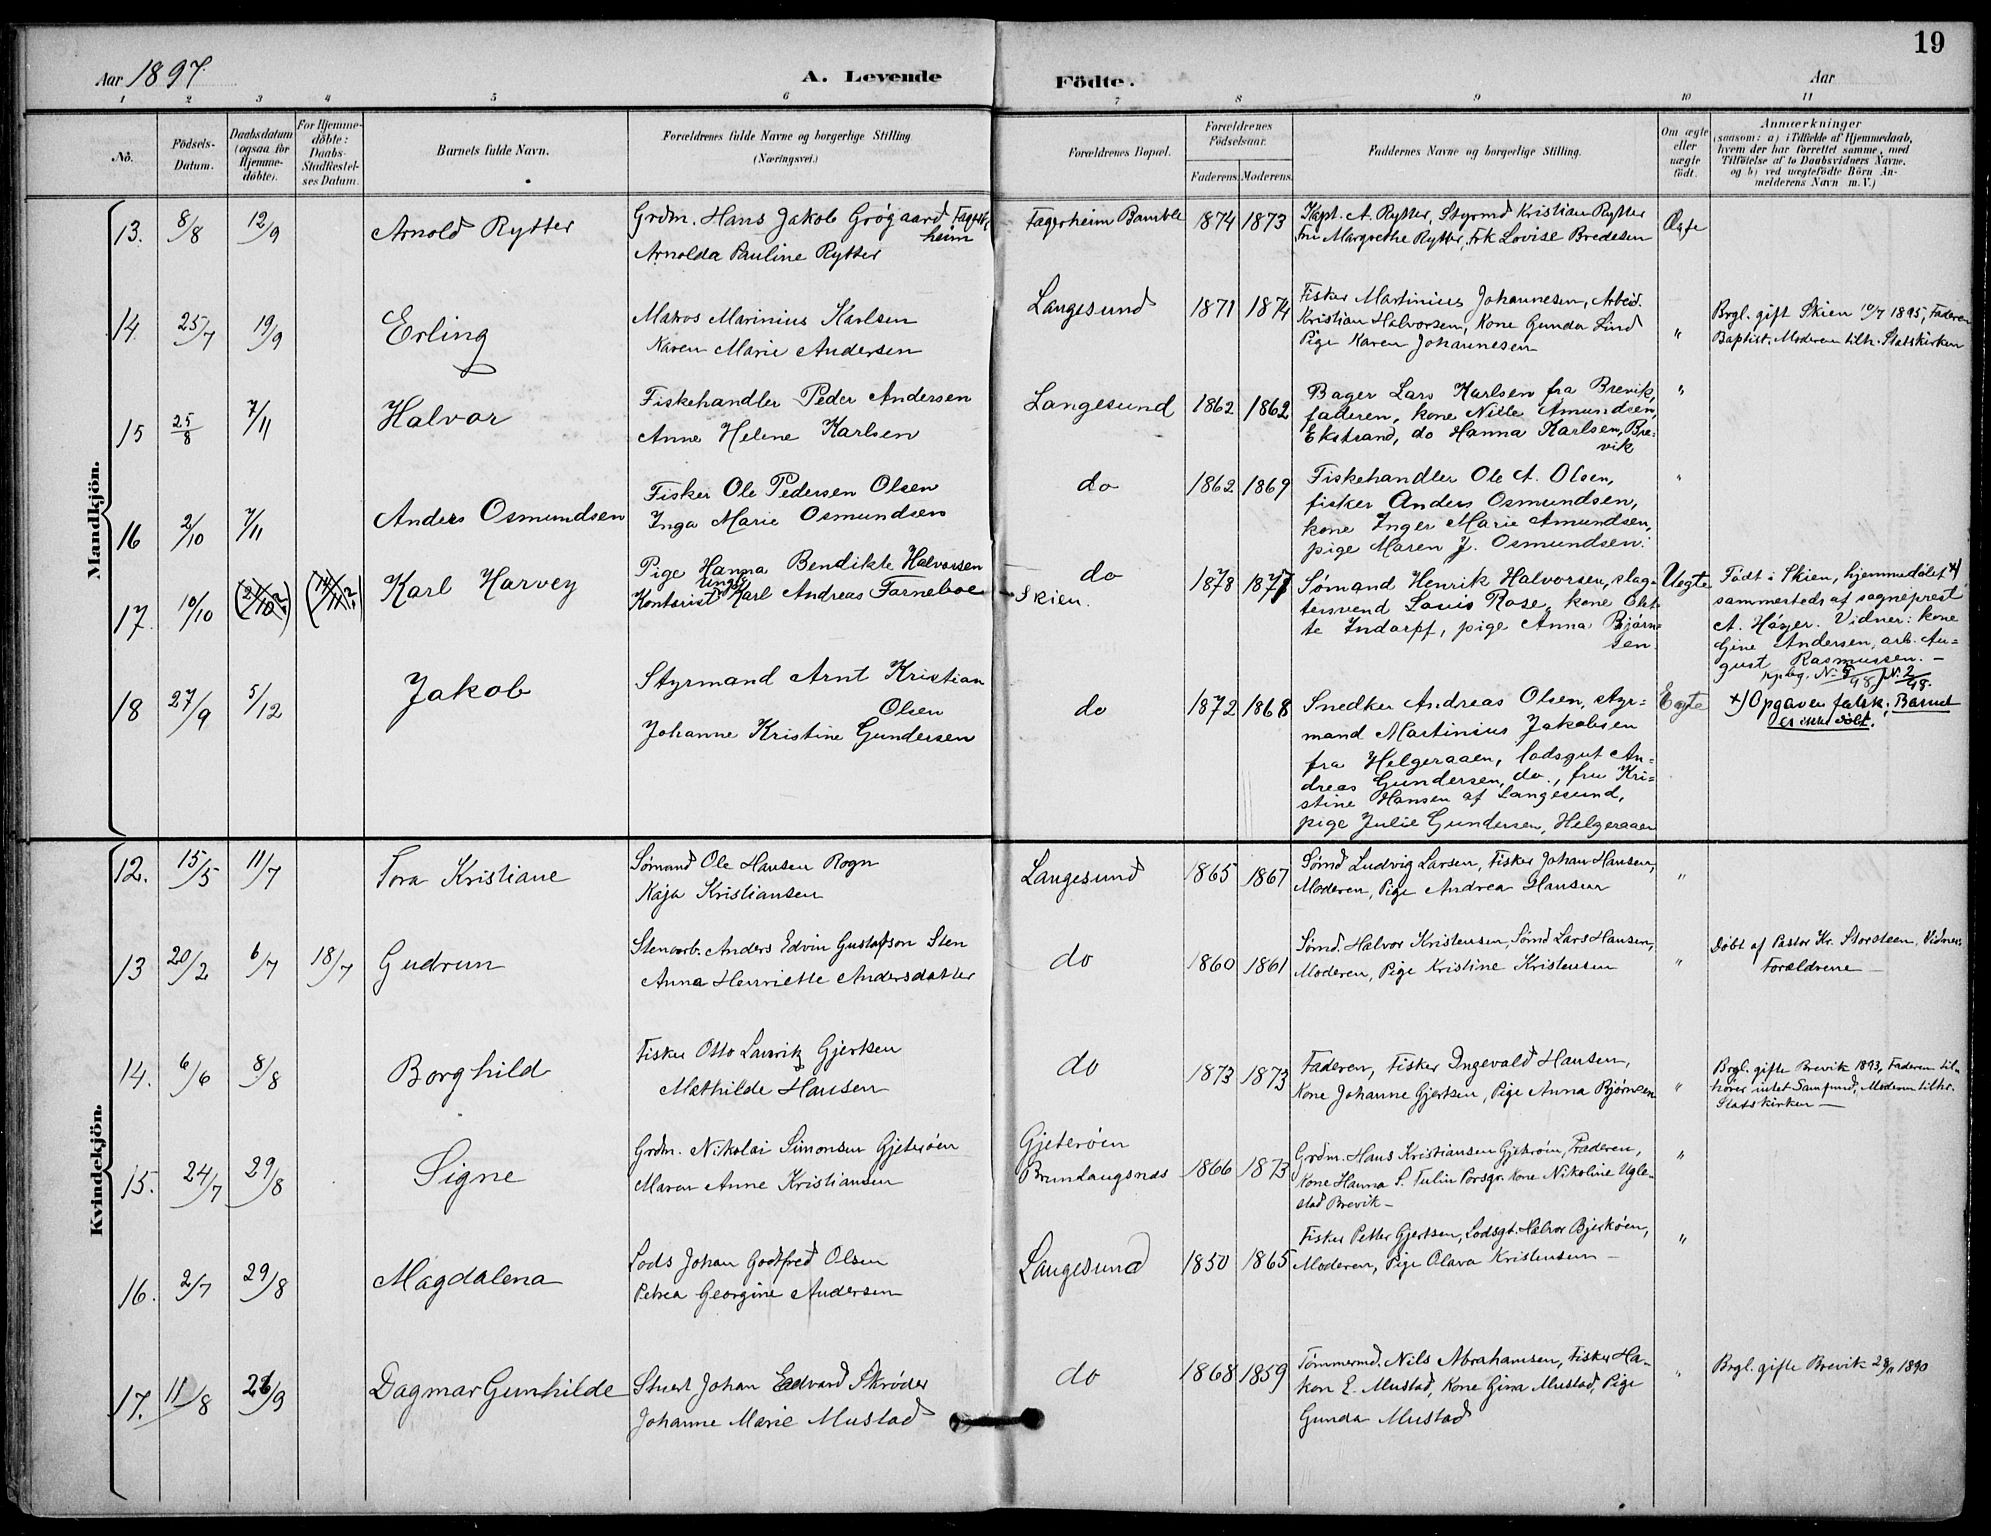 19
Aar 1897.
A. Levende
Födte.
Aar
1 2 3 4 5 6 7 8 9 10 11
No.
Födsels-Datum.
Daabsdatum (ogsaa for Hjemme-döbte).
For Hjemme-döbte: Daabs-Stadfæstel-ses Datum.
Barnets fulde Navn.
Forældrenes fulde Navne og borgerlige Stilling (Næringsvei.)
Forældrenes Bopæl.
Forældrenes Födselsaar.
Faderens. Moderens.
Faddernes Navne og borgerlige Stilling.
Om ægte eller uægte födt.
Anmærkninger
(saasom: a) i Tilfælde af Hjemmedaab, hvem der har forrettet samme, med Tilföielse af to Daabsvidners Navne, og b) ved uægtefödte Börn Anmelderens Navn m. V.)
Mandkjön.
13. 8/8 12/9 Arnold Rytter
Grdm. Hans Jakob Grøgaard Fagerheim
Arnolda Pauline Rytter
Fagerheim Bamble 1874 1873
Kapt. A. Rytter, Styrmd Kristian Rytter
Fru Margrethe Rytter, Frk Lovise Bredesen
Ægte
14. 25/7 19/9 Erling
Matros Marinius Karlsen
Maren Marie Andersen
Langesund 1871 1874
Fisker Martinius Johannesen, Arbeid.
Kristian Halvorsen, Kone Gunda Lind
Pige Karen Johannesen
"
Brgl. gift Skien 10/7 1895, Faderen
Baptist. Moderen tilh. Statskirken
15 25/8 7/11 Halvor
Fiskehandler Peder Andersen
Anne Helene Karlsen
Langesund 1862 1862
Bager Lars Karlsen fra Brevik,
faderen, kone Nille Amundsen,
Ekstrand, do Hanna Karlsen, Bre-
vik
"
16 2/10 7/11 Anders Osmundsen
Fisker Ole Pedersen Olsen
Inga Marie Osmundsen
do 1862 1869
Fiskehandler Ole A. Olsen,
fisker Anders Osmundsen,
kone Inger Marie Amundsen,
pige Maren J. Osmundsen.
"
17. 10/10 Karl Harvey
Pige Hanna Bendikte Halvorsen
Ungk.
Kontorist Karl Andreas Farneboe
do
Skien. 1878 1877
Sømand Henrik Halvorsen, slag-
tersvend Louis Rose, kone Olet-
te Indorpf, pige Anna Bjørn-
sen.
Uegte
Født i Skien, hjemmedøbt x)
sammesteds af sogneprest
A. Høyer. Vidner: kone
Gine Andersen, arb. Au-
gust Rasmussen. –
18 27/9 5/12 Jakob
Styrmand Arnt Kristian
Olsen
Johanne Kristine Gundersen
do 1872 1868
Snedker Andreas Olsen, styr-
mand Martinius Jakobsen
fra Helgeraaen, lodsgut An-
dreas Gundersen, do., fru Kri-
stine Hansen af Langesund,
pige Julie Gundersen, Helgeraaen
Egte
x) Opgaven falsk; Barnet
er ikke døbt.
Kvindekjön.
12. 15/5 11/7 Tora Kristiane
Sømand Ole Hansen Rogn
Kaja Kristiansen
Langesund 1865 1867
Sømd Ludvig Larsen, Fisker Johan Hansen,
Moderen, Pige Andrea Hansen
"
13 20/2 6/7 18/7 Gudrun
Stenarb. Anders Edvin Gustafson Sten
Anna Henriette Andersdatter
do 1860 1861
Sømd. Halvor Kristensen, Sømd Lars Hansen,
Moderen, Pige Kristine Kristensen
"
Døbt af Pastor Kr. Storsteen. Vidner:
Forældrene –
14. 6/6 8/8 Borghild
Fisker Otto Lauritz Gjertsen
Mathilde Hansen
do 1873 1873
Faderen, Fisker Ingevald Hansen,
Kone Johanne Gjertsen, Pige Anna Bjørnsen
"
Brgl. gifte Brevik 1893, Faderen til-
hører intet Samfund, Moderen tilhr.
Statskirken –
15. 24/7 29/8 Signe
Grdm. Nikolai Simonsen Gjeterøen
Maren Anne Kristiansen
Gjeterøen
Brunlangsnæs 1866 1873
Grdm. Hans Kristiansen Gjeterøen, Faderen,
Kone Hanna S. Tulin Porsgr. Kone Nikoline Ugle-
stad Brevik –
"
16. 2/7 29/8 Magdalena
Lods Johan Godtfred Olsen
Petrea Georgine Andersen
Langesund 1850 1865
Fisker Petter Gjertsen, Lodsgt. Halvor Bjerkøen,
Moderen, Pige Olava Kristensen –
"
17. 11/8 26/9 Dagmar Gunhilde
Stuert Johan Edvard Skrøder
Johanne Marie Mustad
do 1868 1859
Tømmermd. Nils Abrahamsen, Fisker Ha-
kon E. Mustad, Kone Gina Mustad, Pige
Gunda Mustad
"
Brgl. gifte Brevik 28/11 1890